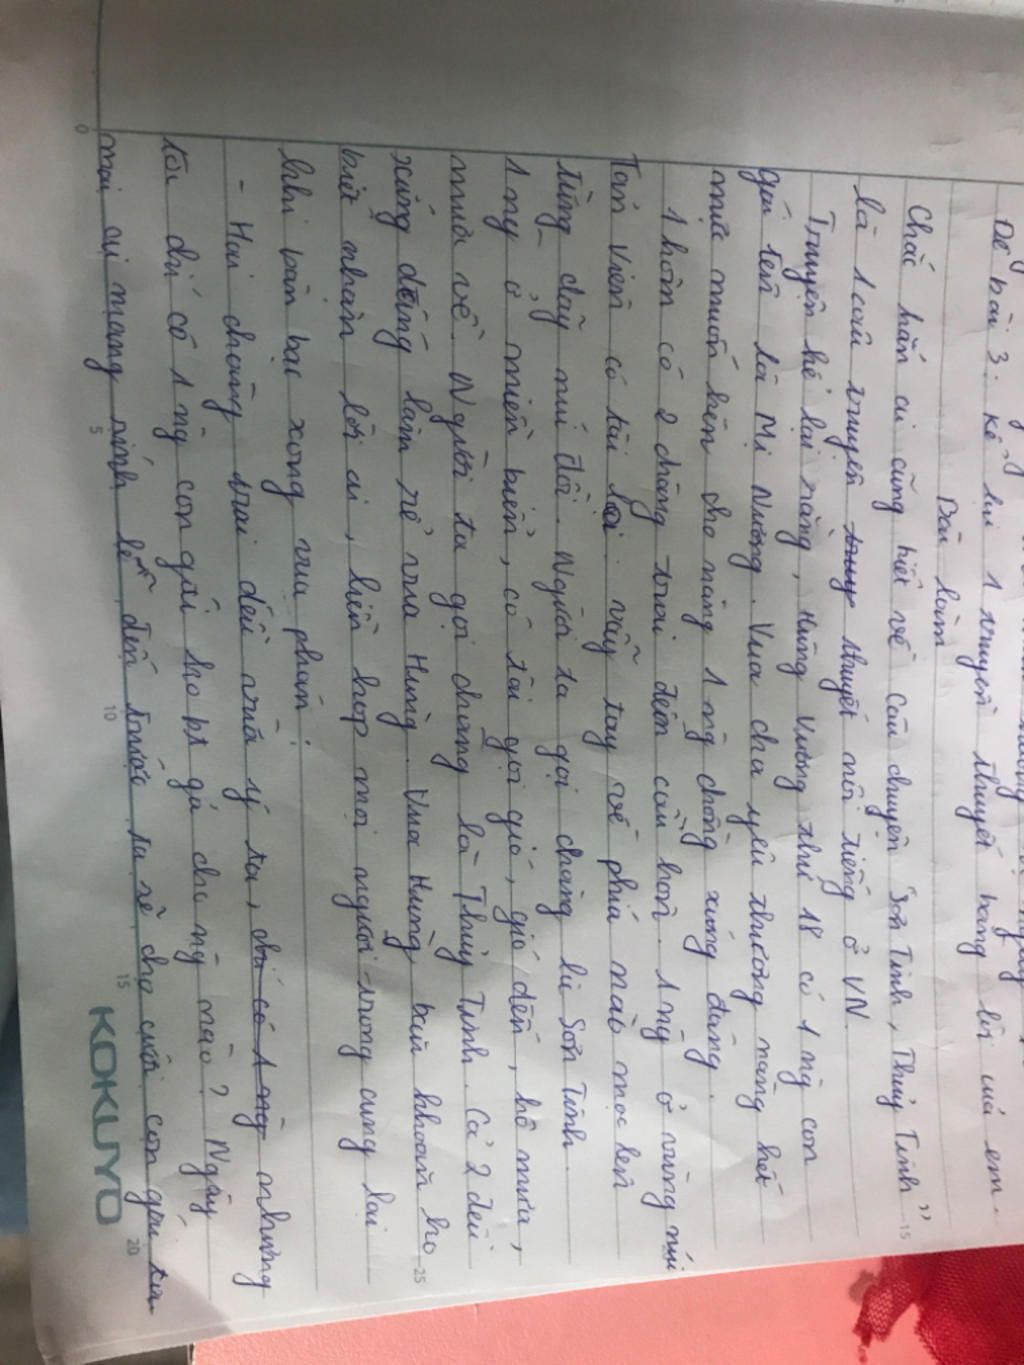 Đề bài 3: Kể lại 1 truyền thuyết bằng lời của em.
Bài làm
Chắc hẳn ai cũng biết về câu chuyện "Sơn Tinh, Thủy Tinh"
là 1 câu truyện truy thuyết nổi tiếng ở VN.
Truyện kể lại rằng, Hùng Vương thứ 18 có 1 ng con
gái tên là Mị Nương. Vua cha yêu thương nàng hết
mực muốn kiên cho nàng 1 ng chồng xứng đáng.
1 hôm có 2 chàng trai đến cầu hôn. 1 ng ở vùng núi
Tản Viên có tài lạ: vẫy tay về phía nào mọc lên
từng dãy núi đồi. Người ta gọi chàng là Sơn Tinh.
1 ng ở miền biển, có tài gọi gió, gió đến, hô mưa,
mưa về. Người ta gọi chàng là Thủy Tinh. Cả 2 đều
xứng đáng làm rể vua Hùng. Vua Hùng băn khoăn ko
biết nhận lời ai, liền họp mọi người trong cung lại
khi bàn bạc xong vua phán:
- Hai chàng trai đều vừa ý ta, chỉ có 1 ng nhưng
tôi chỉ có 1 ng con gái ko bt gả cho ng nào? Ngày
mai ai mang sính lễ đến trước ta sẽ cho cưới con gái ta.
KOKUYO
0
5
10
15
20
15
25